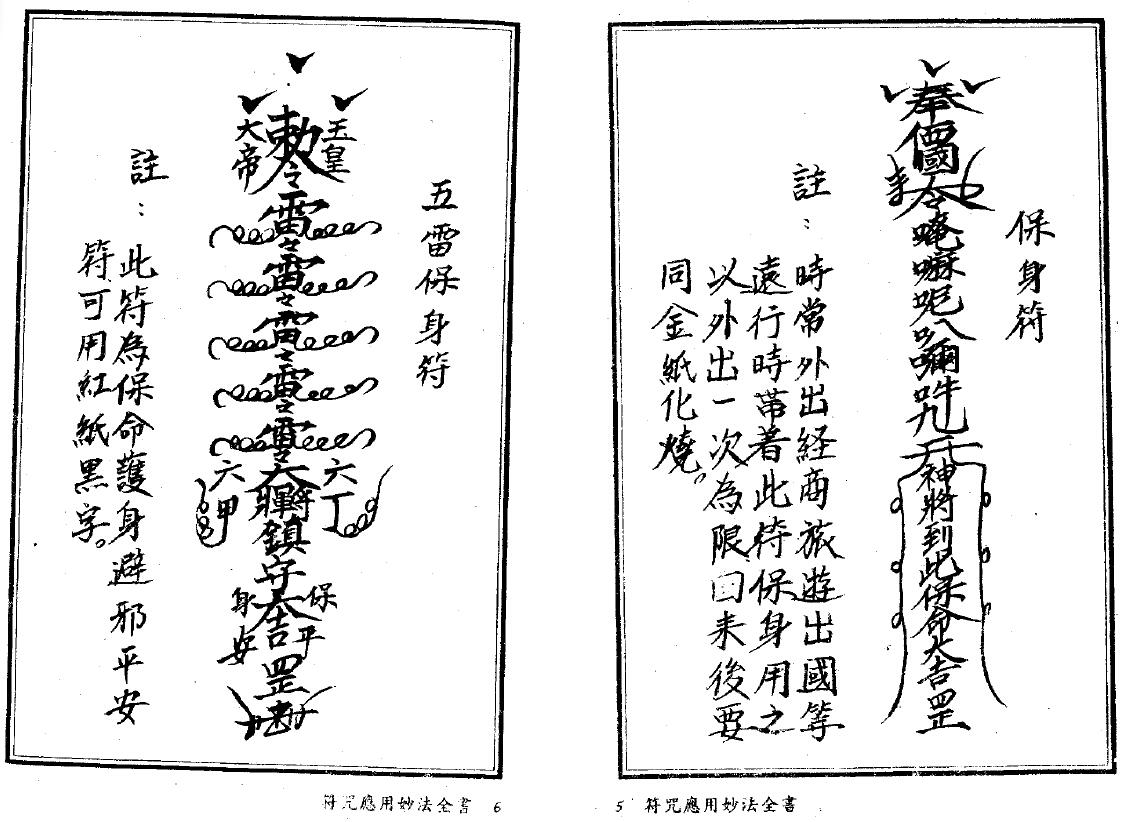 保身符
奉
國令唵嘛呢八
神將到此保命大吉罡
註：
時常外出経商旅遊出國等
遠行時帯著此符保身用之
以外出一次為限回来後要
同金紙化燒。
5 符咒應用妙法全書
五雷保身符
玉皇
敕令雷々雷々雷々雷々雷々
大帝
六丁
六甲
將
鎮守大吉罡
保平
身安
註：此符為保命護身避邪平安
符可用紅紙黑字。
符咒應用妙法全書 6